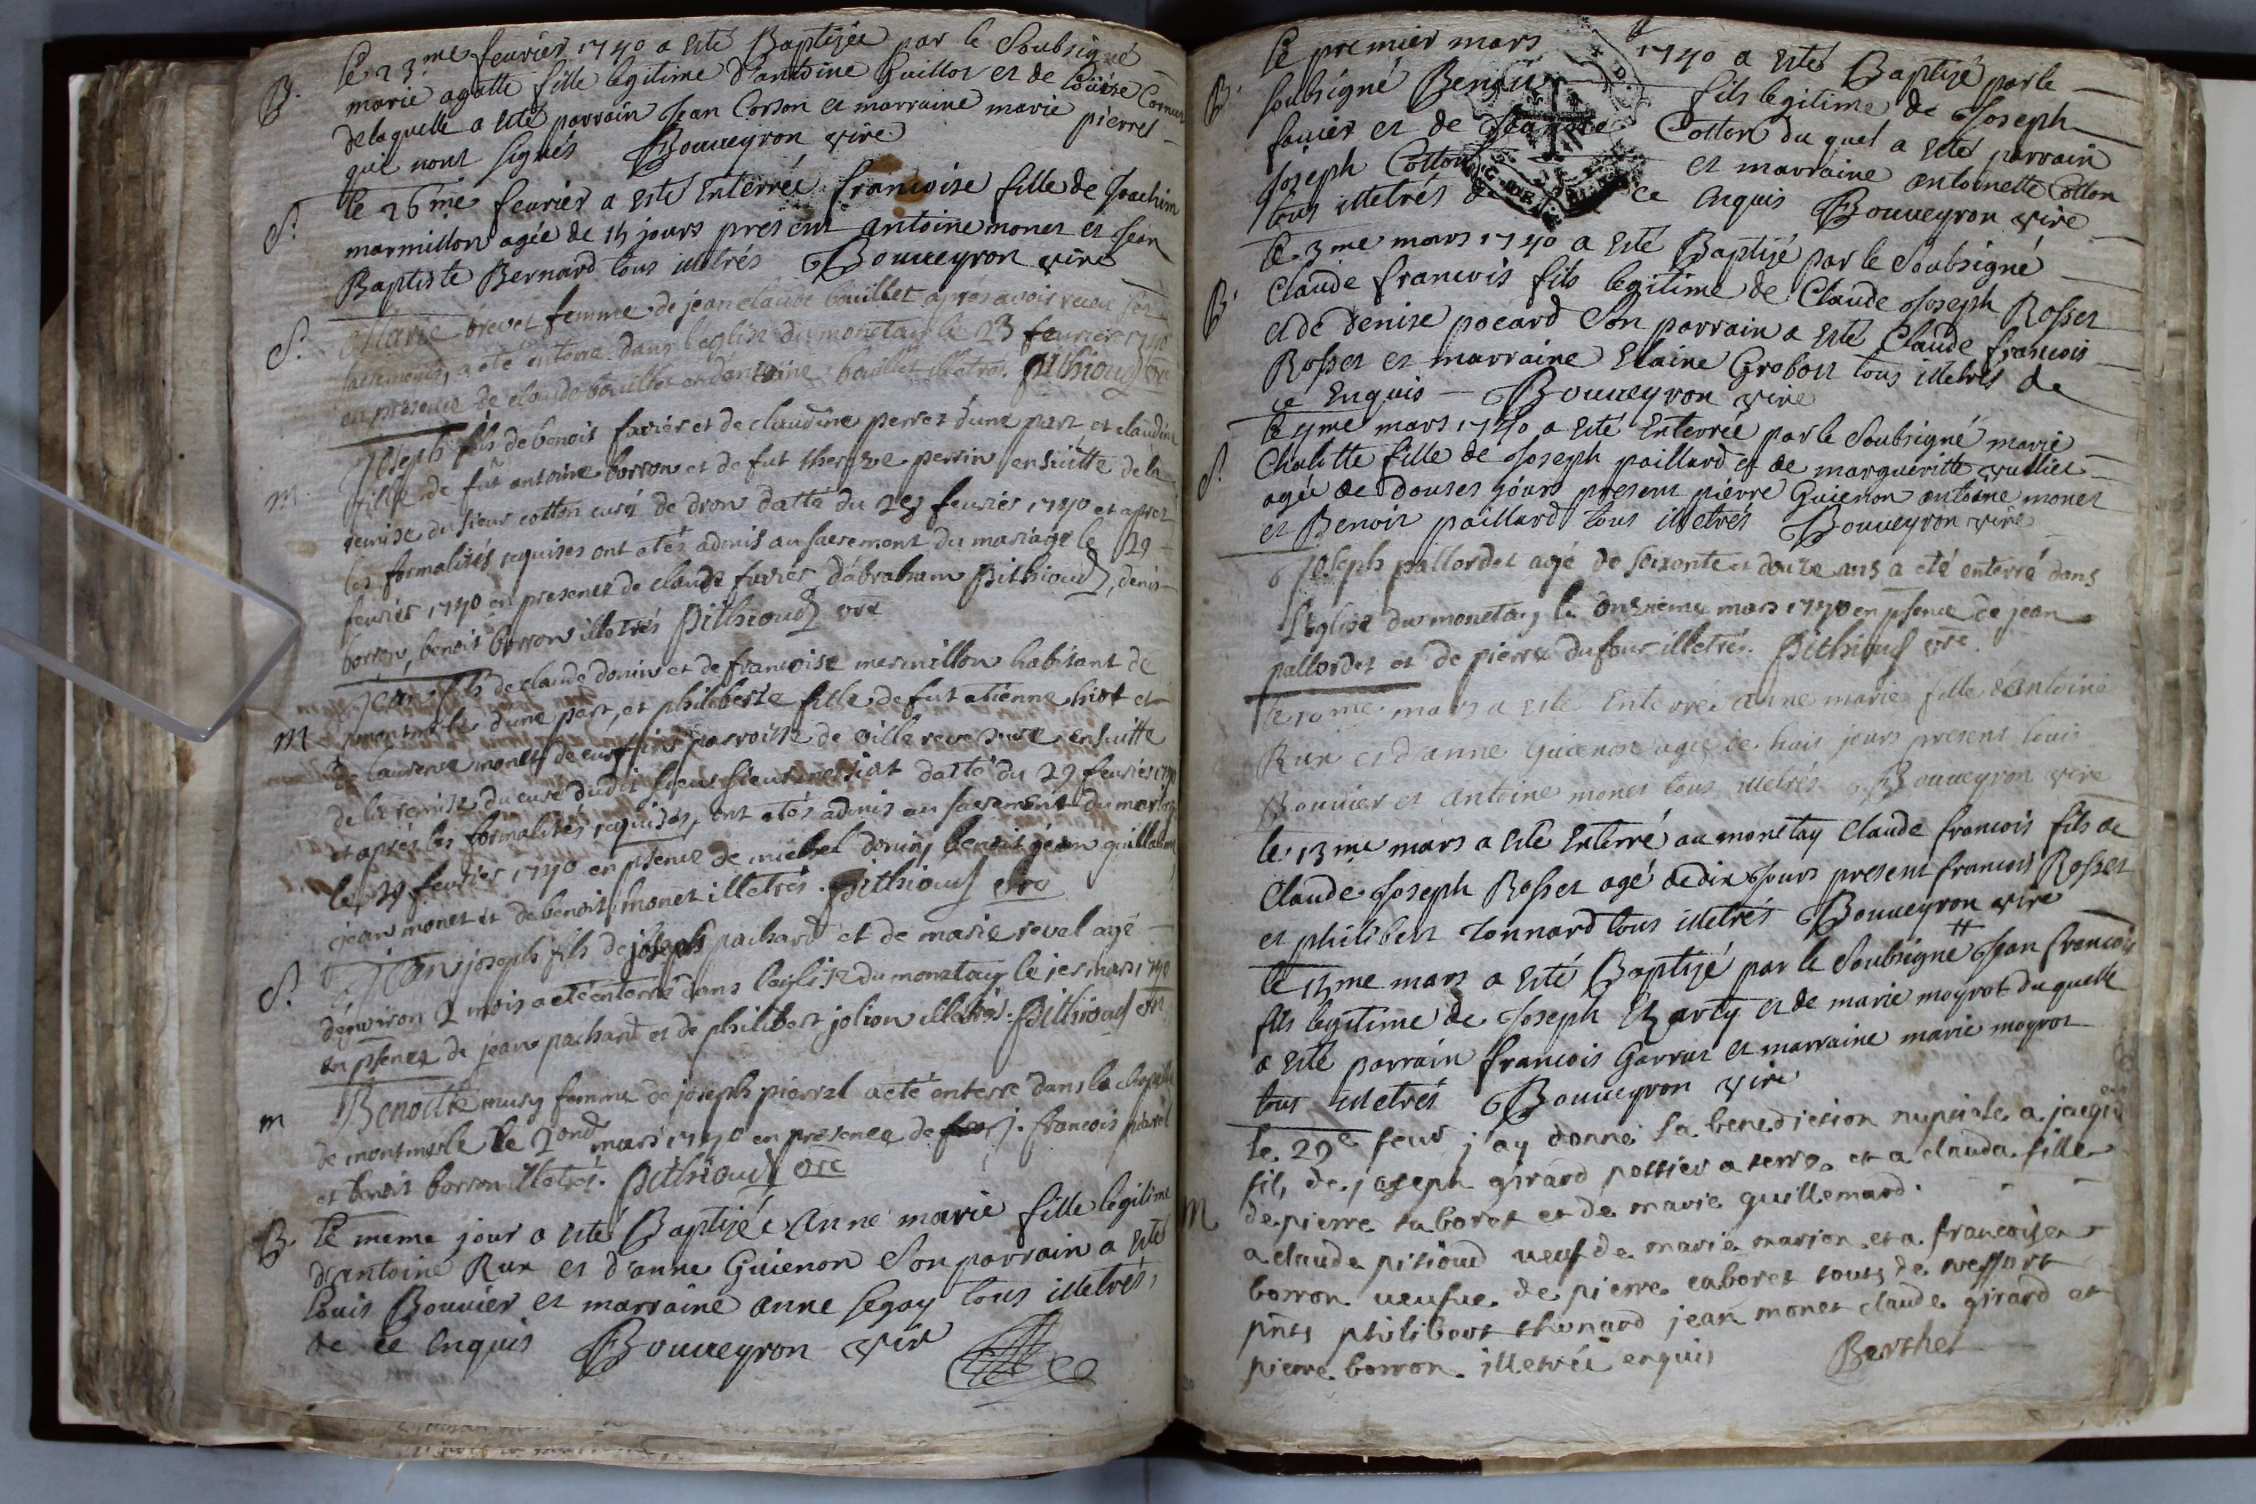 B. le 23me feurier 1740 a esté Baptisée par le Soubsigné
marie agatte fille legitime d'antoine Guillot et de Louise Cornu
de laquelle a esté parrain Jean Corson et marraine marie pierret
qui nont signés Bouueyron vire
S. le 26me feurier a esté Enterrée francoise fille de Joachim
marmillon agée de 15 jours present antoine monet et Jean
Baptiste Bernard tous illetrés Bouueyron vire
S. Marie brevet femme de jean claude bouillet apres avoir receu ses
sacrements, a eté enterré dans l'eglise du monetay le 23 feurier 1740
en presence de claude bouillet et d'antoine bouillet illetres. pithioud vre
joseph fils de benoit favier et de claudine perret d'une part, et claudine
m. fille de fut antoine borron et de fut therese perrin ensuitte de la
remise du sieur cotton curé de dron datté du 28 feurier 1740 et apres
les formalités requises ont etés admis au sacrement du mariage le 29
feurier 1740 en presence de claude favier d'abraham pithioud, denis
borron, benoit borron illetrés pithioud vre
jean fils de claude donin et de francoise mermillon habitant de
m montmerle d'une part, et philiberte fille de fut etienne hiot et
de laurence monet de paroisse de villereversure ensuitte
de la remise du curé dudit lieu sieur datté du 29 feurier 1740
et apres les formalités requises, ont etés admis au sacrement du mariage
le 29 feurier 1740 en psence de michel donin, benoit jean guillaume
jean monet et de benoit monet illetrés. pithioud vre
S. jean joseph fils de joseph pachard et de marie revel agé
d'environ 2 mois a eté enterré dans l'eglise du monetay le 1er mars 1740
en psence de jean pachard et de philibert jolion illetrés. pithioud vre
m Benoitte musy femme de joseph pierrel a eté enterré dans la chapelle
de montmerle le 2ond mars 1740 en presence de j. francois
et benoit borron illetrés. pithioud vre
B. le meme jour a esté Baptisée Anne marie fille legitime
d'antoine Rux et d'anne Guienon Son parrain a esté
Louis Bouuier et marraine anne segay tous illetrés
de ce enquis Bouueyron vire
le premier mars 1740 a esté Baptisé par le
B. soubsigné Benoit fils legitime de Joseph
fauier et de Jeanne Cotton du quel a esté parrain
Joseph Cotton et marraine antoinette Cotton
tous illetrés de ce enquis Bouueyron vire
le 3me mars 1740 a esté Baptisé par le Soubsigné
B. Claude francois fils legitime de Claude Joseph Rosset
et de denise pocard Son parrain a esté Claude francois
Rosset et marraine Elaine Grobon tous illetrés de
ce Enquis Bouueyron vire
le 9me mars 1740 a esté Enterrée par le Soubsigné marie
S. Chalotte fille de Joseph paillard et de margueritte vulliet
agée de douses jours present pierre Guienon antoine monet
et Benoit paillard tous illetrés Bouueyron vire
joseph pallordet agé de soixante et douze ans a eté enterré dans
l'eglise du monetay le onzieme mars 1740 en psence de jean
pallordet et de pierre dufour illetrés. pithioud vre
le 10me mars a esté Enterrée anne marie fille d'Antoine
Rux et d'anne Guienon agée de huit jours present Louis
Bouuier et antoine monet tous illetrés Bouueyron vire
le 13me mars a esté Enterré au monetay Claude francois fils de
Claude Joseph Rosset agé de dix Jours present francois Rosset
et philibert Tonnard tous illetrés Bouueyron vire
le 15me mars a esté Baptisé par le Soubsigné Jean francois
fils legitime de Joseph et de marie moyrot du quelle
a esté parrain francois Garrut et marraine marie moyrot
tous illetrés Bouueyron vire
le 29e feur j'ay donné la benediction nuptiale a jacques
fils de joseph girard pottier a terre et a clauda fille
M de pierre taboret et de marie guillemard.
a claude pitioud ueuf de marie marion et a francoise
borron ueufue de pierre taboret touts de
pnts philibert thonard jean monet claude girard et
pierre borron illetrés enquis Berthet